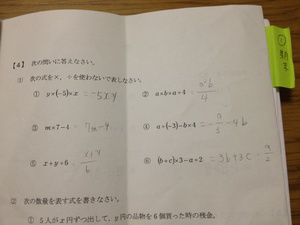 ① 数学
【4】 次の問いに答えなさい。
① 次の式を×，÷を使わないで表しなさい。
① y×(−5)×x = −5xy
② a×b×a÷4 =
③ m×7−4 = 7m−4
④ a÷(−3)−b×4 = − −4b
⑤ x+y÷6 =
⑥ (b+c)×3−a÷2 = 3b+3c−
② 次の数量を表す式を書きなさい。
① 5人がx円ずつ出して，y円の品物を6個買った時の残金。